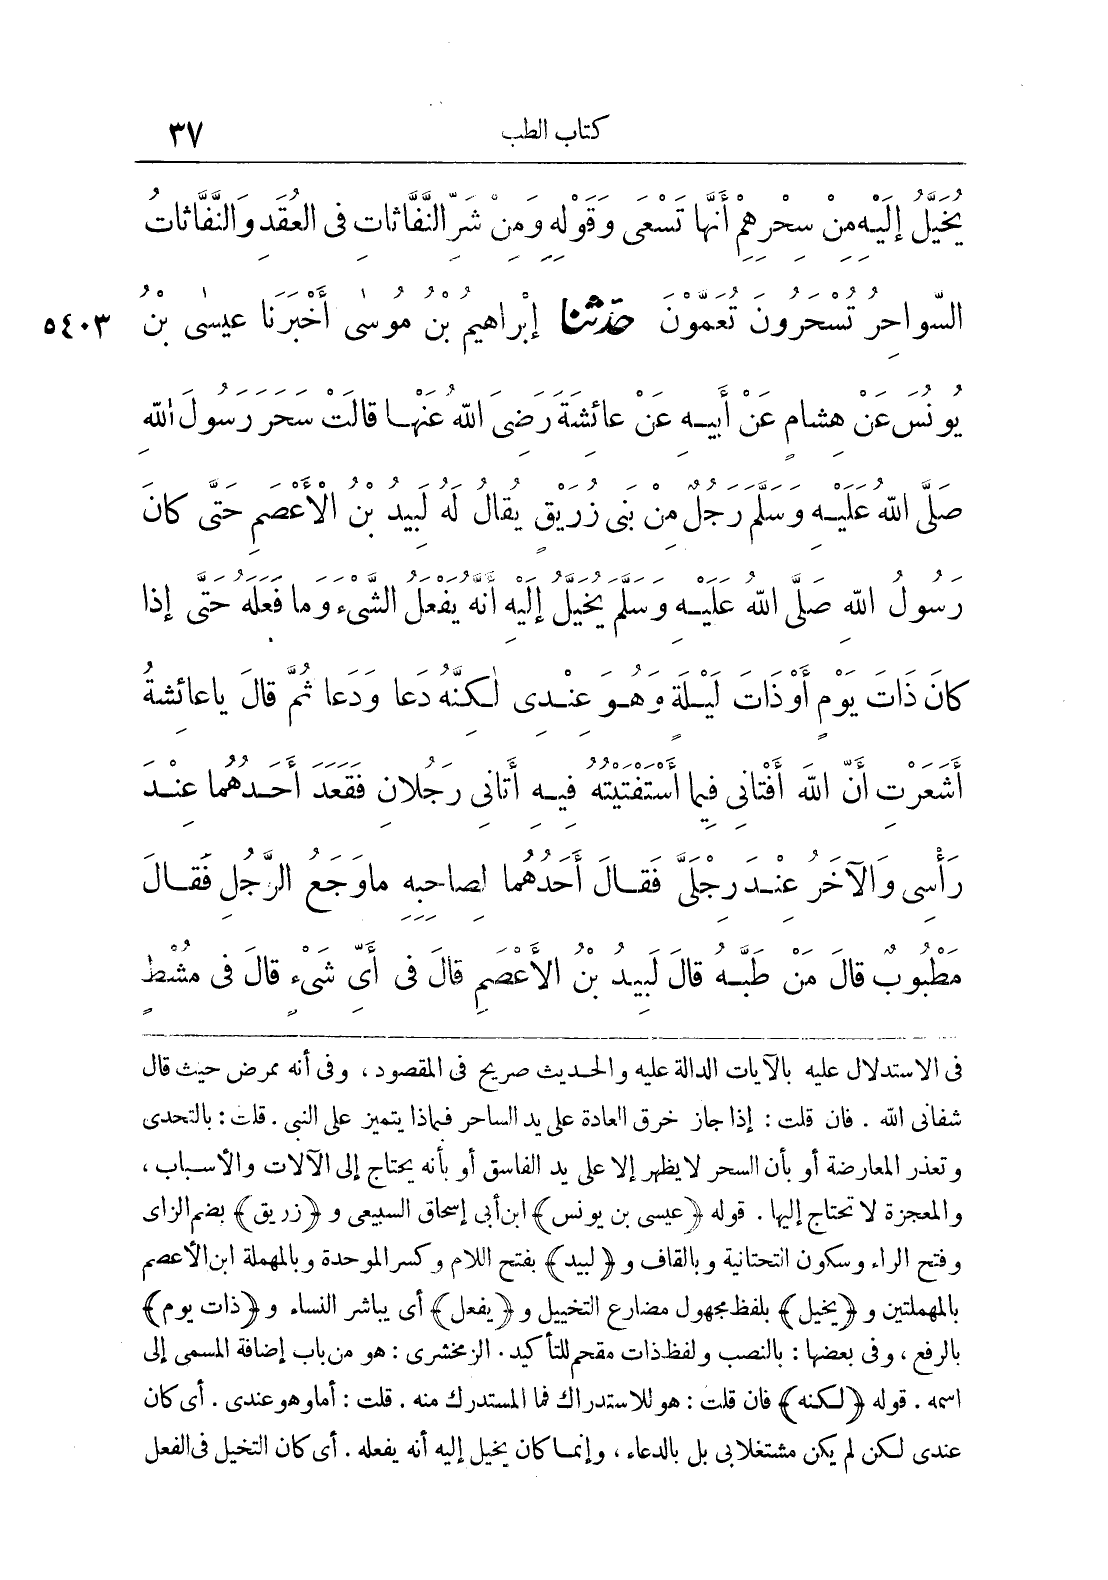 كتاب الطب ٣٧
يُخَيَّلُ إِلَيْهِ مِنْ سِحْرِهِمْ أَنَّهَا تَسْعَى وَقَوْلِهِ وَمِنْ شَرِّ النَّفَّاثَاتِ فِى الْعُقَدِ وَالنَّفَّاثَاتُ
السَّوَاحِرُ تُسْحَرُونَ تُعَمَّوْنَ حدثنا إِبْرَاهِيمُ بْنُ مُوسَى أَخْبَرَنَا عِيسَى بْنُ ٥٤٠٣
يُونُسَ عَنْ هِشَامٍ عَنْ أَبِيهِ عَنْ عَائِشَةَ رَضِىَ اللهُ عَنْهَا قَالَتْ سَحَرَ رَسُولَ اللهِ
صَلَّى اللهُ عَلَيْهِ وَسَلَّمَ رَجُلٌ مِنْ بَنِى زُرَيْقٍ يُقَالُ لَهُ لَبِيدُ بْنُ الْأَعْصَمِ حَتَّى كَانَ
رَسُولُ اللهِ صَلَّى اللهُ عَلَيْهِ وَسَلَّمَ يُخَيَّلُ إِلَيْهِ أَنَّهُ يَفْعَلُ الشَّىْءَ وَمَا فَعَلَهُ حَتَّى إِذَا
كَانَ ذَاتَ يَوْمٍ أَوْ ذَاتَ لَيْلَةٍ وَهُوَ عِنْدِى لٰكِنَّهُ دَعَا وَدَعَا ثُمَّ قَالَ يَا عَائِشَةُ
أَشَعَرْتِ أَنَّ اللهَ أَفْتَانِى فِيمَا اسْتَفْتَيْتُهُ فِيهِ أَتَانِى رَجُلَانِ فَقَعَدَ أَحَدُهُمَا عِنْدَ
رَأْسِى وَالْآخَرُ عِنْدَ رِجْلَىَّ فَقَالَ أَحَدُهُمَا لِصَاحِبِهِ مَا وَجَعُ الرَّجُلِ فَقَالَ
مَطْبُوبٌ قَالَ مَنْ طَبَّهُ قَالَ لَبِيدُ بْنُ الْأَعْصَمِ قَالَ فِى أَىِّ شَىْءٍ قَالَ فِى مُشْطٍ
فى الاستدلال عليه بالآيات الدالة عليه والحديث صريح فى المقصود ، وفى أنه ممرض حيث قال
شفانى الله . فان قلت : إذا جاز خرق العادة على يد الساحر فبماذا يتميز على النبى . قلت : بالتحدى
وتعذر المعارضة أو بأن السحر لا يظهر إلا على يد الفاسق أو بأنه يحتاج إلى الآلات والأسباب ،
والمعجزة لا تحتاج إليها . قوله ﴿عيسى بن يونس﴾ ابن أبى إسحاق السبيعى و ﴿زريق﴾ بضم الزاى
وفتح الراء وسكون التحتانية وبالقاف و ﴿لبيد﴾ بفتح اللام وكسر الموحدة وبالمهملة ابن الأعصم
بالمهملتين و ﴿يخيل﴾ بلفظ مجهول مضارع التخييل و ﴿يفعل﴾ أى يباشر النساء و ﴿ذات يوم﴾
بالرفع ، وفى بعضها : بالنصب ولفظ ذات مقحم للتأكيد . الزمخشرى : هو من باب إضافة المسمى إلى
اسمه . قوله ﴿لكنه﴾ فان قلت : هو للاستدراك فما المستدرك منه . قلت : أما وهو عندى . أى كان
عندى لكن لم يكن مشتغلا بى بل بالدعاء ، وإنما كان يخيل إليه أنه يفعله . أى كان التخيل فى الفعل